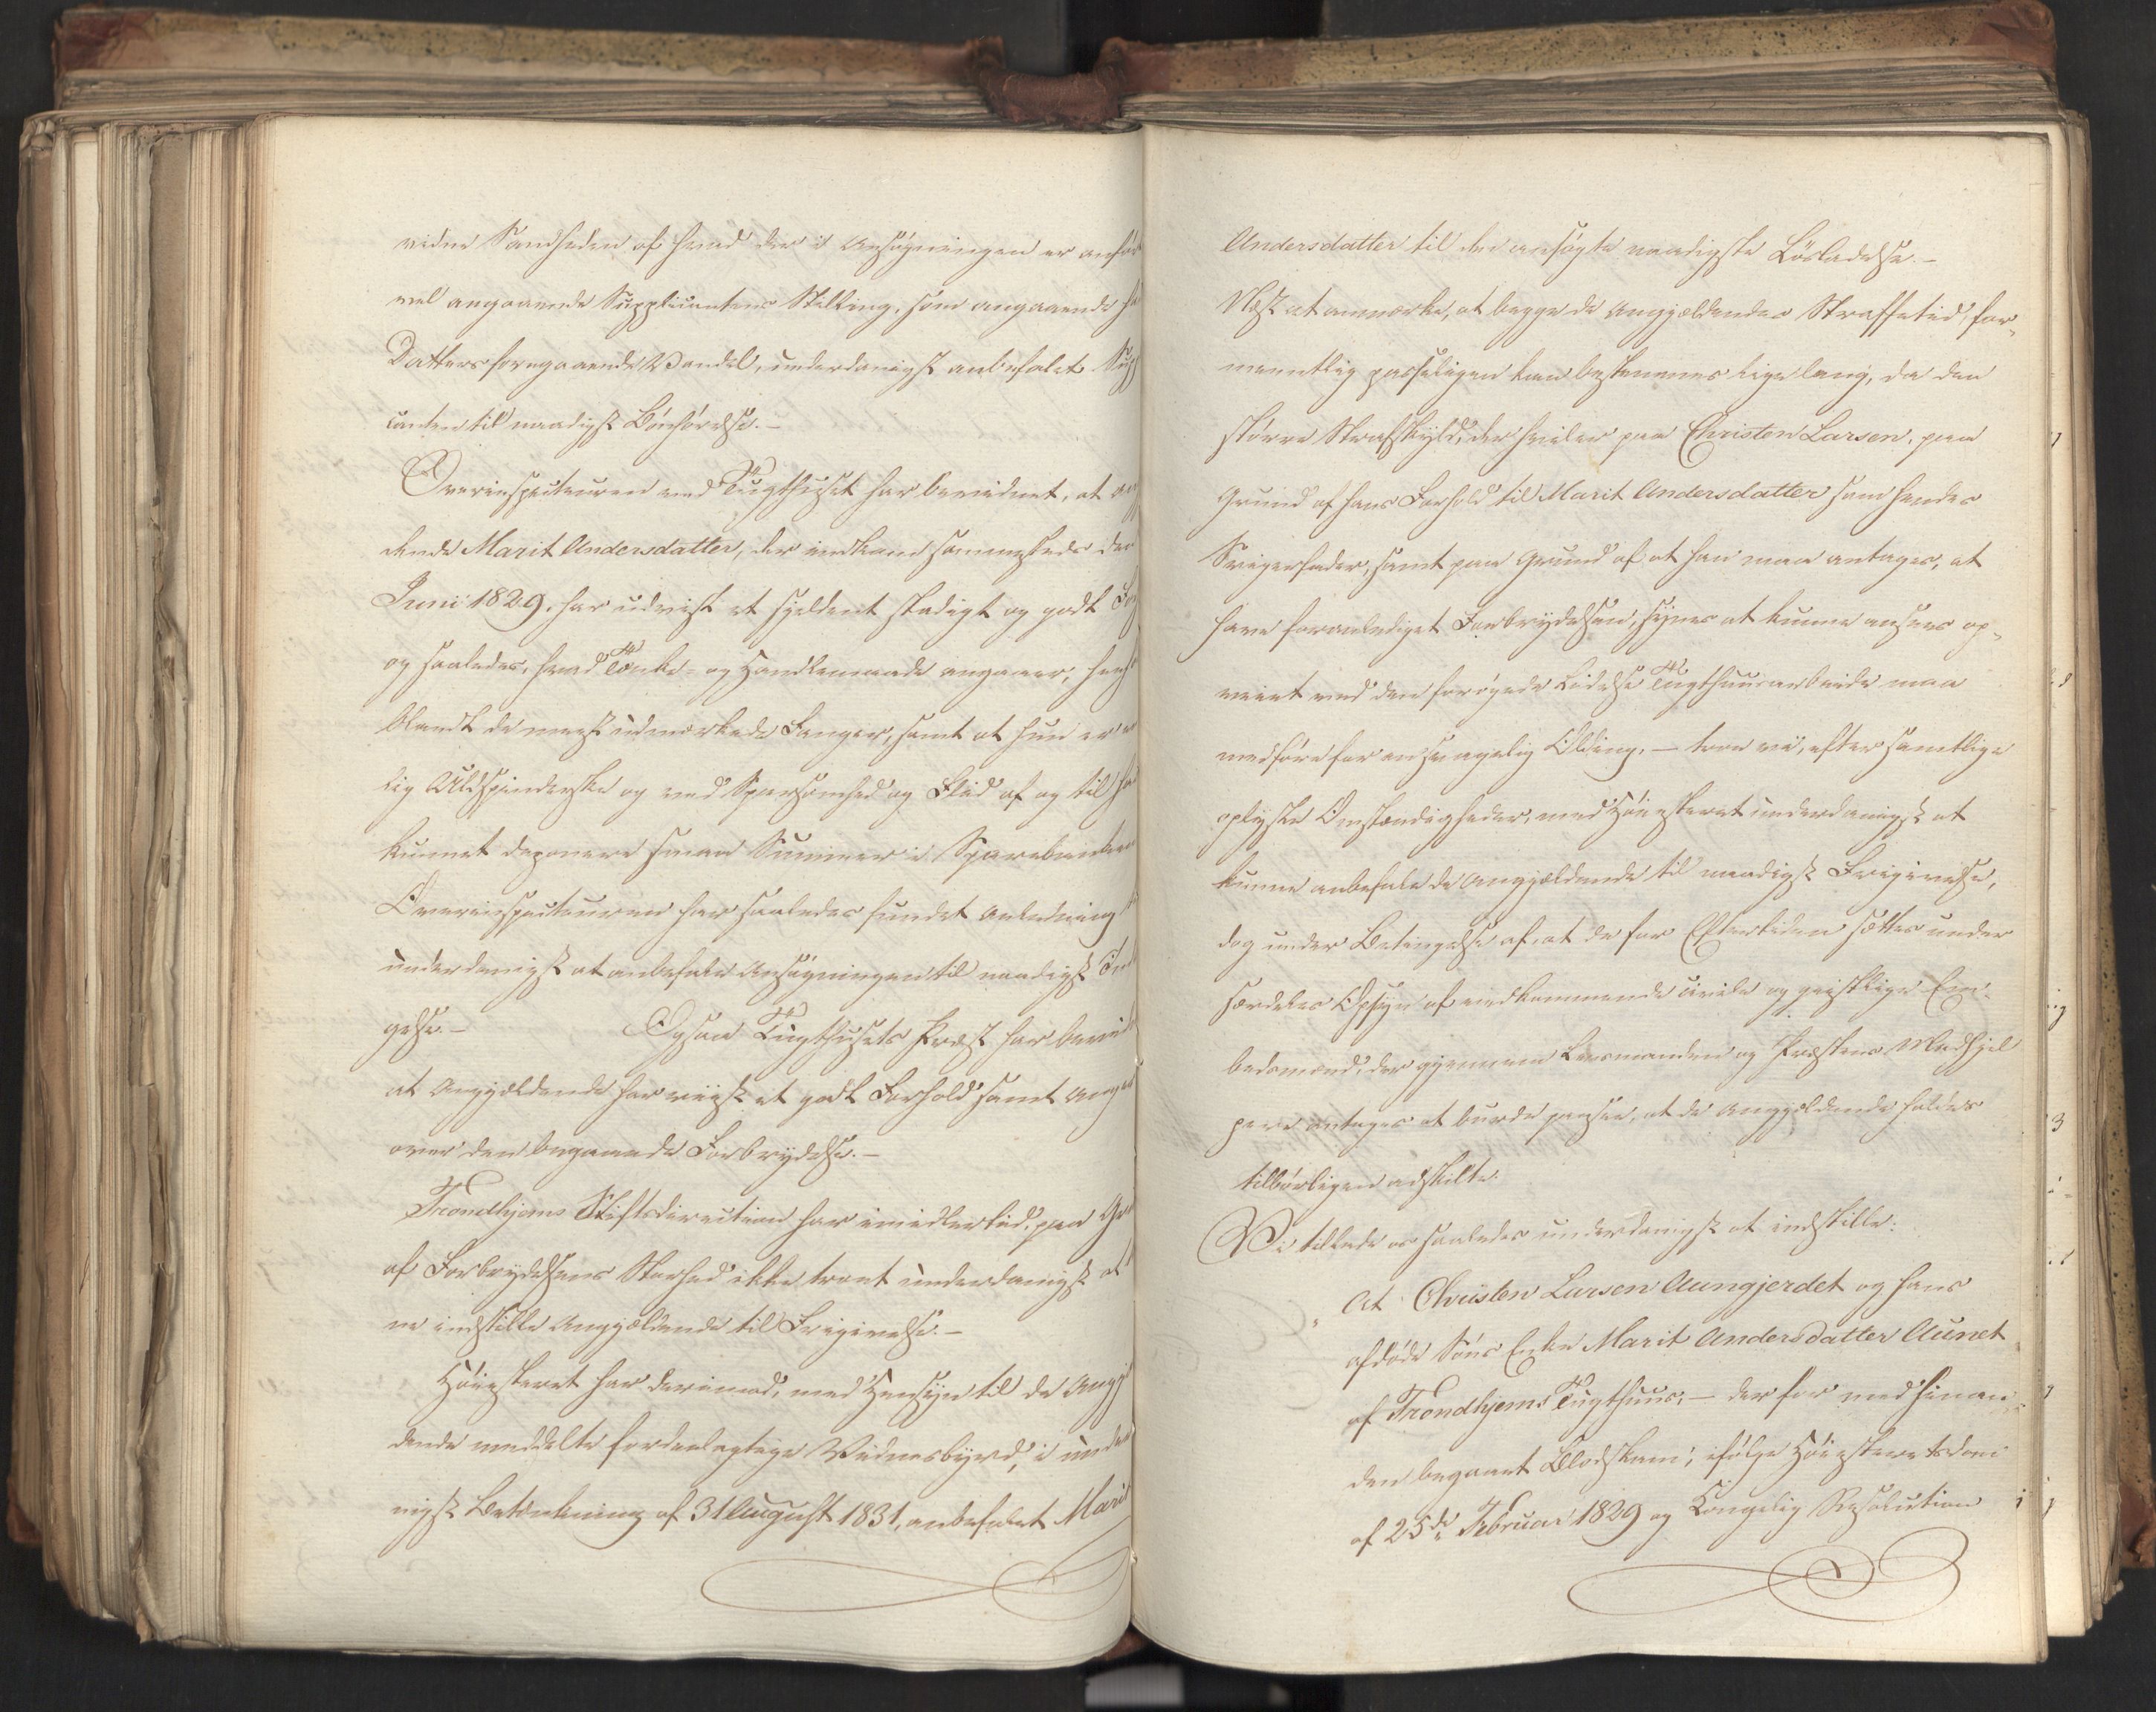 vidne Sandheden af hvad der i Ansøgningen er anfør
vel angaaende Supplicantens Stilling, som angaaende h
Datters foregaaende Vandel, underdanigst anbefalet Sup
canten til naadigst Bønhørelse.-
Overinspecteuren ved Tugthuset har bevidnet, at
dende Marit Andersdatter, der indkom sammesteds den
Juni 1829, har udvist et sjeldent stadigt og godt
og saaledes, hvad Tænke- og Handlemaade angaaer,
blandt de meest udmærkede Fanger, samt at hun er
lig Uldspinderske og ved Sparsomhed og Flid af og til
kunnet deponere smaa Summer i Sparebanken
Overinspecteuren har saaledes fundet Anledning
underdanigst at anbefale Ansøgningen til naadigst
gelse.- Ogsaa Tugthusets Præst har bevid
at Angjældende har viist et godt Forhold samt Anger
over den begaaede Forbrydelse.-
Trondhjems Stiftsdirection har imidlertid, paa Gr
af Forbrydelsens Storhed ikke troet underdanigst at
ne indstille Angjældende til Frigivelse.-
Høiesteret har derimod, med Hensyn til de Angj
dende meddelte fordeelagtige Vidnesbyrd, i under
nigst Betænkning af 31 August 1831, anbefalet Marit
Andersdatter til den ansøgte naadigste Løsladelse.-
Næst at anmærke, at begge de Angjældendes Straffetid for-
meentlig passeligen kan bestemmes lige lang, da den
større Strafskyld, der hviler paa Christen Larsen, paa
Grund af hans Forhold til Marit Andersdatter som hendes
Svigerfader, samt paa Grund af at han maa antages, at
have foranlediget Forbrydelsen, synes at kunne ansees op-
veiet ved den forøgede Lidelse Tugthuusarbeide maa
medføre for en svagelig Olding, - troe vi, efter samtlige
oplyste Omstændigheder, med Høiesteret underdanigst at
kunne anbefale de Angjældende til naadigst Frigivelse,
dog under Betingelse af, at de for Eftertiden sættes under
særdeles Opsyn af vedkommende civile og geistlige Em-
bedsmænd, der gjennem Lensmanden og Præstens Medhjel
pere antages at burde paasee, at de Angjældende holdes
tilbørligen adskilte.
Vi tillade os saaledes underdanigst at indstille:
" At Christen Larsen Aungjerdet og hans
afdøde Søns Enke Marit Andersdatter Aunet
af Trondhjems Tugthuus, - der for med hinan-
den begaaet Blodskam, ifølge Høiesteretsdom
af 25de Februar 1829 og Kongelig Resolution